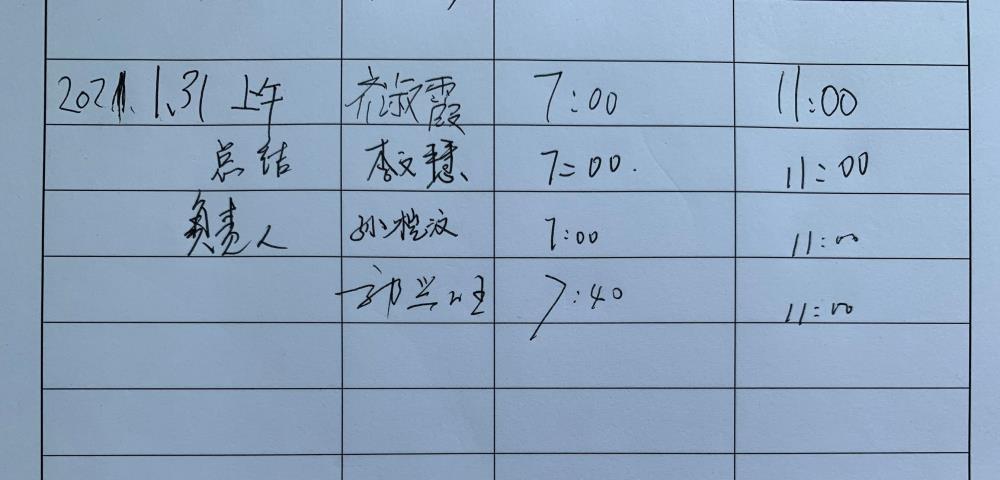 2021.1.31 上午 齐淑霞 7:00 11:00
总结 李文慧 7:00. 11:00
负责人 孙 7:00 11:00
7:40 11:00